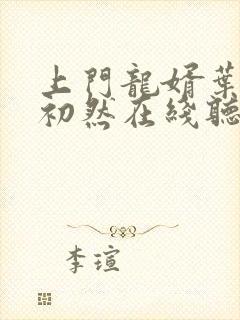 上門龍婿葉
初然在綫聽
李瑄